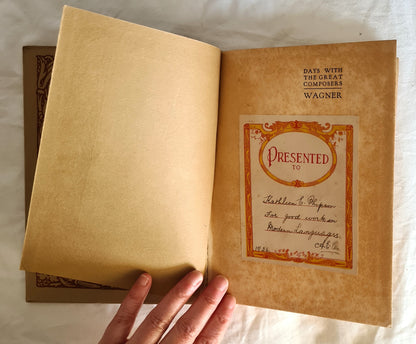 DAYS WITH
THE GREAT
COMPOSERS
WAGNER
PRESENTED
TO
Kathleen C.
For good work in
Modern Languages.